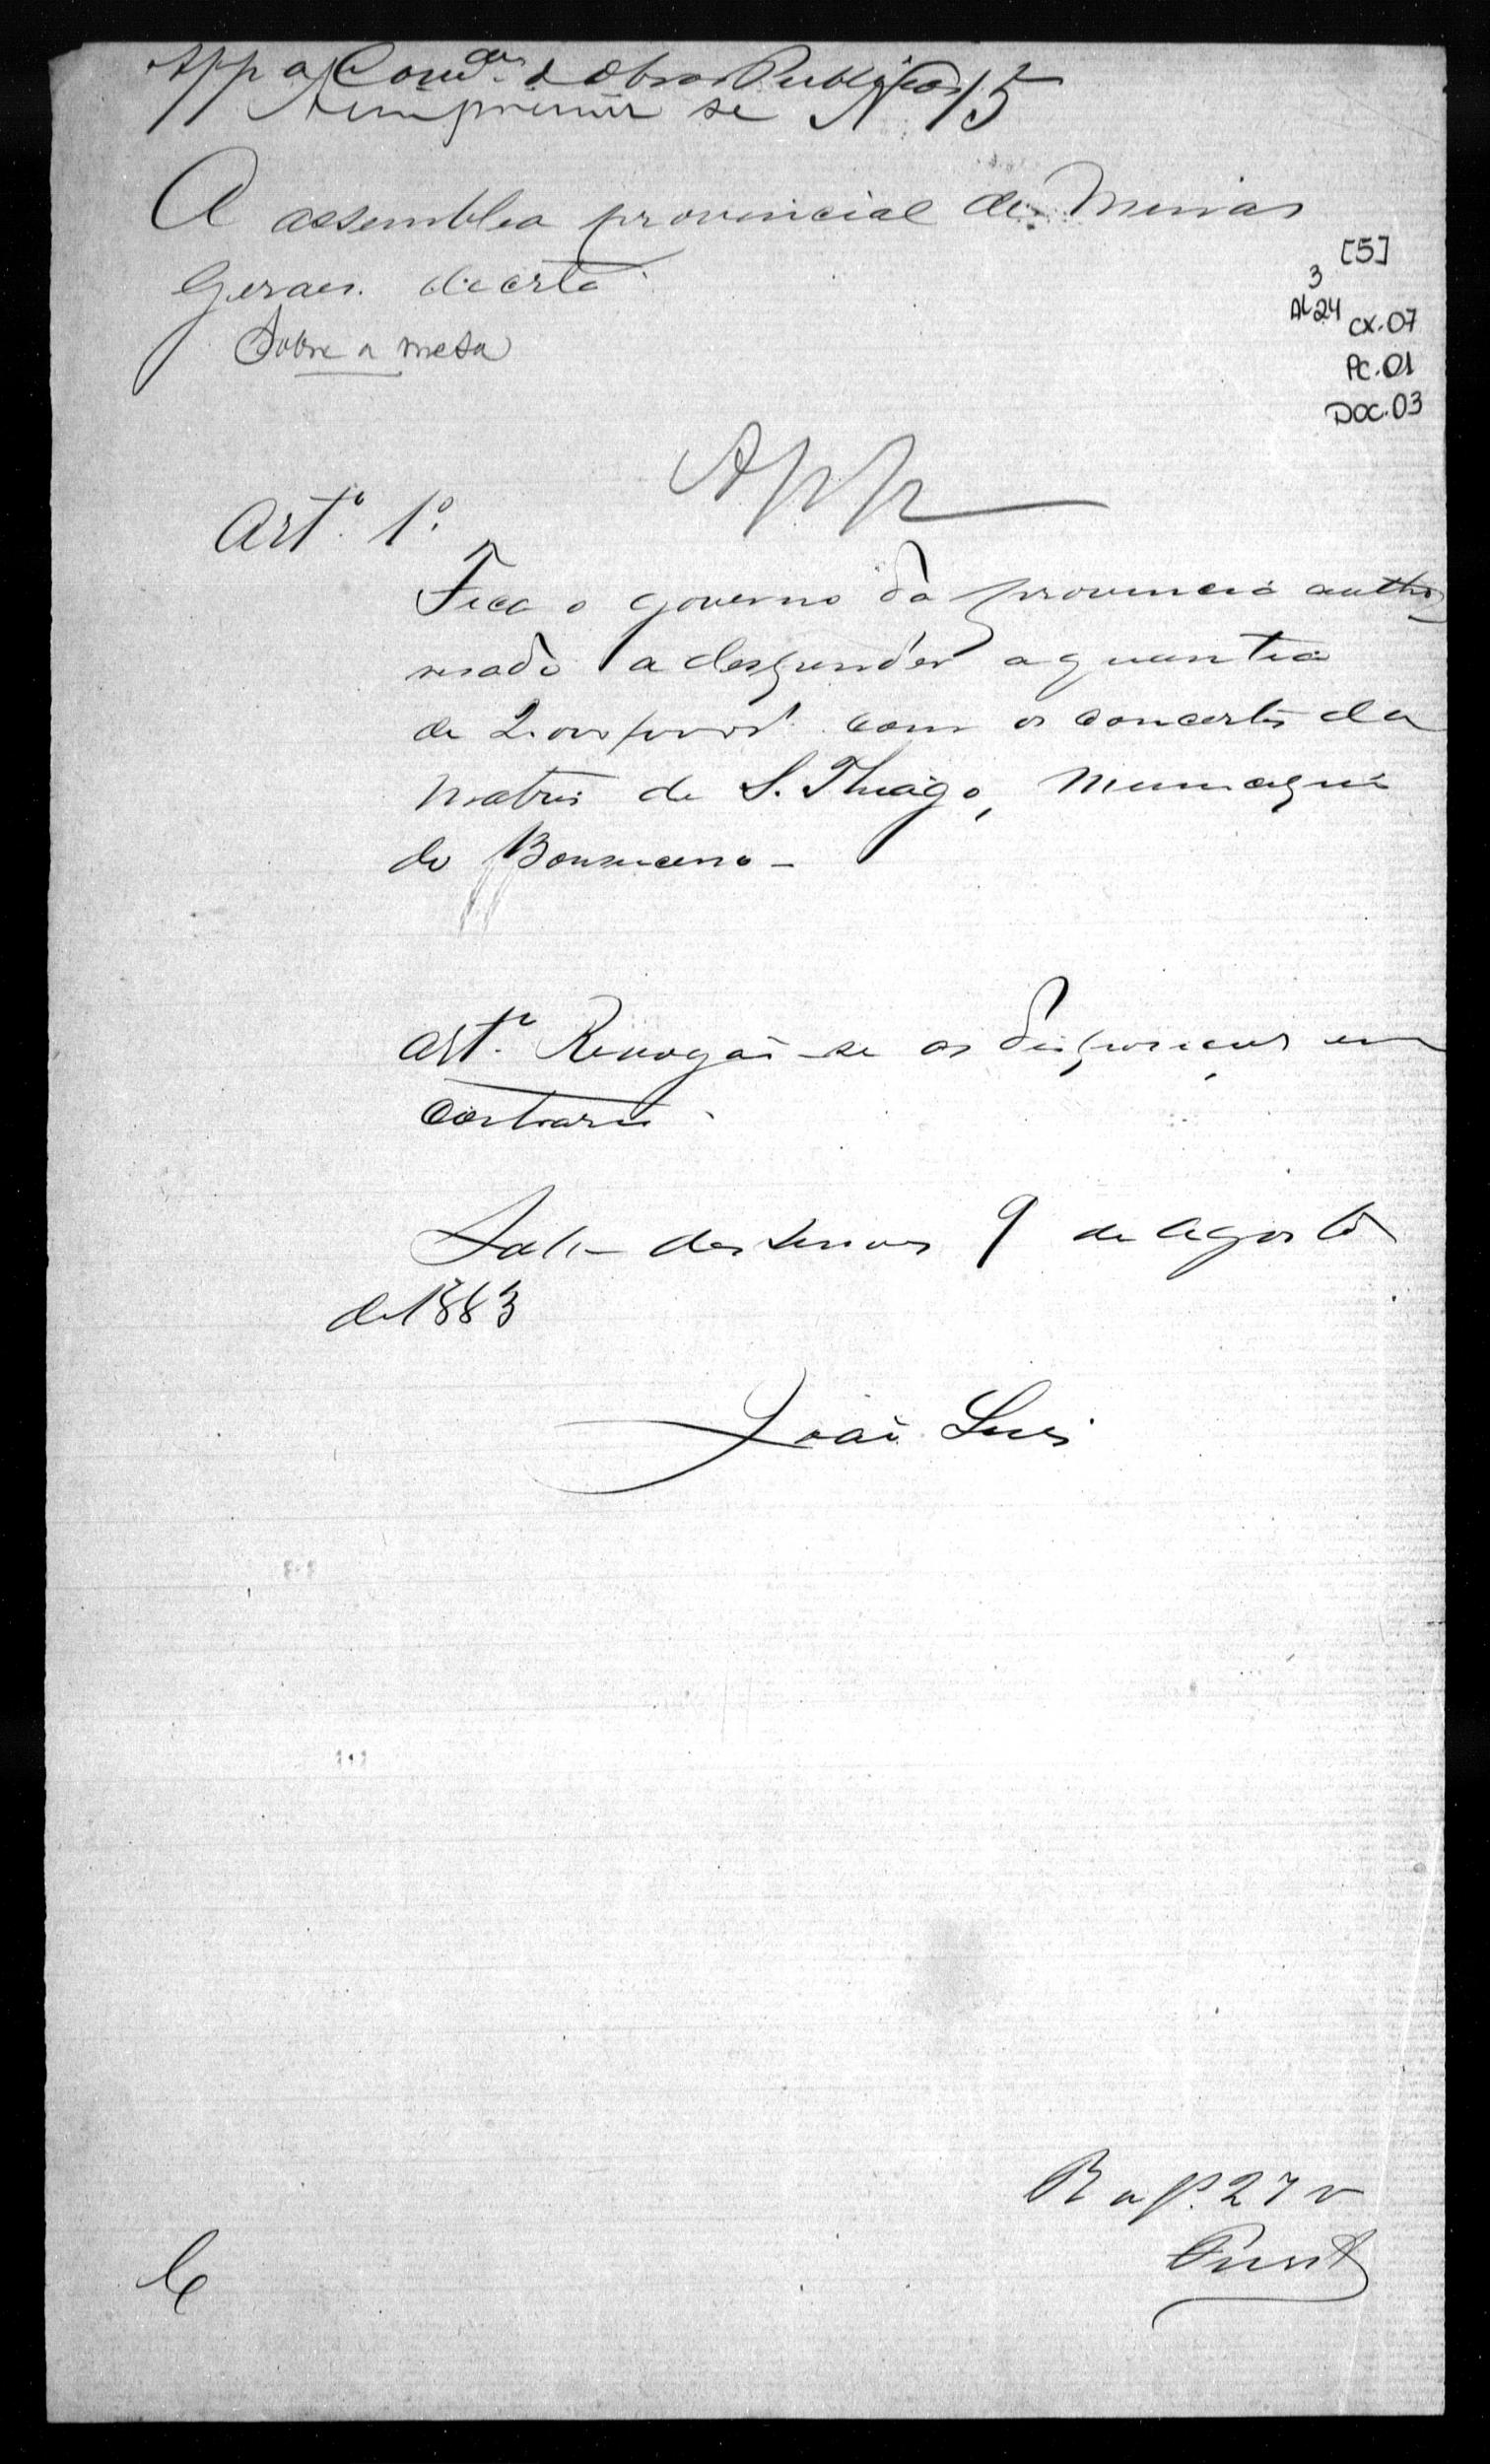 App a Com.ão d Obras Publicas
A imprimir se Nº 15
A assemblea provincial de Minas
Geraes decreta
Sobre a mesa
[5]
3
AL 24 CX.07
PC.01
DOC.03
App
Artº. 1º.
Fica o governo da provincia autho
risado a despender a quantia
de com os concertos da
Matriz de S. Thiago, Municipio
do Bomsucesso -
artº. Revogão-se as disposições em
contrario.
Sala das sessoes 9 de Agosto
de 1883
João Luis
R a f. 27 v